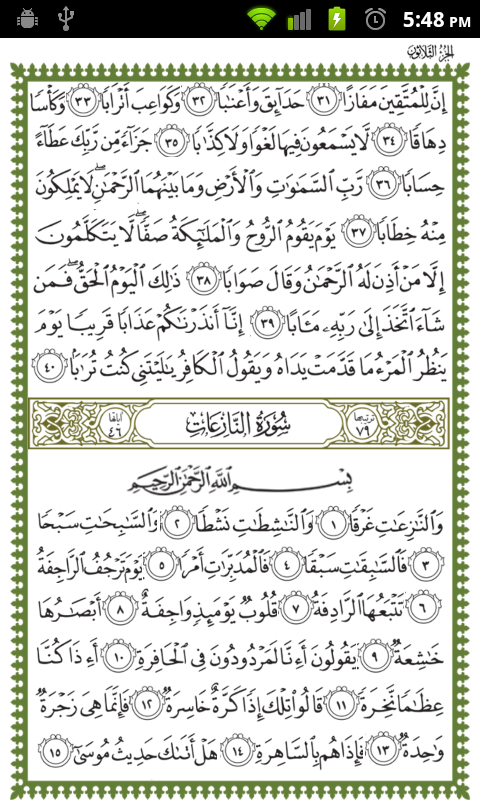 5:48 PM
الجزء الثلاثون
إِنَّ لِلْمُتَّقِينَ مَفَازًا ٣١ حَدَآئِقَ وَأَعْنَٰبًا ٣٢ وَكَوَاعِبَ أَتْرَابًا ٣٣ وَكَأْسًا
دِهَاقًا ٣٤ لَّا يَسْمَعُونَ فِيهَا لَغْوًا وَلَا كِذَّٰبًا ٣٥ جَزَآءً مِّن رَّبِّكَ عَطَآءً
حِسَابًا ٣٦ رَّبِّ السَّمَٰوَٰتِ وَالْأَرْضِ وَمَا بَيْنَهُمَا الرَّحْمَٰنِ ۖ لَا يَمْلِكُونَ
مِنْهُ خِطَابًا ٣٧ يَوْمَ يَقُومُ الرُّوحُ وَالْمَلَٰٓئِكَةُ صَفًّا ۖ لَّا يَتَكَلَّمُونَ
إِلَّا مَنْ أَذِنَ لَهُ الرَّحْمَٰنُ وَقَالَ صَوَابًا ٣٨ ذَٰلِكَ الْيَوْمُ الْحَقُّ ۖ فَمَن
شَآءَ اتَّخَذَ إِلَىٰ رَبِّهِۦ مَـَٔابًا ٣٩ إِنَّآ أَنذَرْنَٰكُمْ عَذَابًا قَرِيبًا يَوْمَ
يَنظُرُ الْمَرْءُ مَا قَدَّمَتْ يَدَاهُ وَيَقُولُ الْكَافِرُ يَٰلَيْتَنِي كُنتُ تُرَٰبًا ٤٠
ترتيبها ٧٩ سُورَةُ النَّازِعَاتِ آياتها ٤٦
بِسْمِ اللَّهِ الرَّحْمَٰنِ الرَّحِيمِ
وَالنَّٰزِعَٰتِ غَرْقًا ١ وَالنَّٰشِطَٰتِ نَشْطًا ٢ وَالسَّٰبِحَٰتِ سَبْحًا
٣ فَالسَّٰبِقَٰتِ سَبْقًا ٤ فَالْمُدَبِّرَٰتِ أَمْرًا ٥ يَوْمَ تَرْجُفُ الرَّاجِفَةُ
٦ تَتْبَعُهَا الرَّادِفَةُ ٧ قُلُوبٌ يَوْمَئِذٍ وَاجِفَةٌ ٨ أَبْصَٰرُهَا
خَٰشِعَةٌ ٩ يَقُولُونَ أَءِنَّا لَمَرْدُودُونَ فِي الْحَافِرَةِ ١٠ أَءِذَا كُنَّا
عِظَٰمًا نَّخِرَةً ١١ قَالُوا تِلْكَ إِذًا كَرَّةٌ خَاسِرَةٌ ١٢ فَإِنَّمَا هِيَ زَجْرَةٌ
وَٰحِدَةٌ ١٣ فَإِذَا هُم بِالسَّاهِرَةِ ١٤ هَلْ أَتَىٰكَ حَدِيثُ مُوسَىٰٓ ١٥